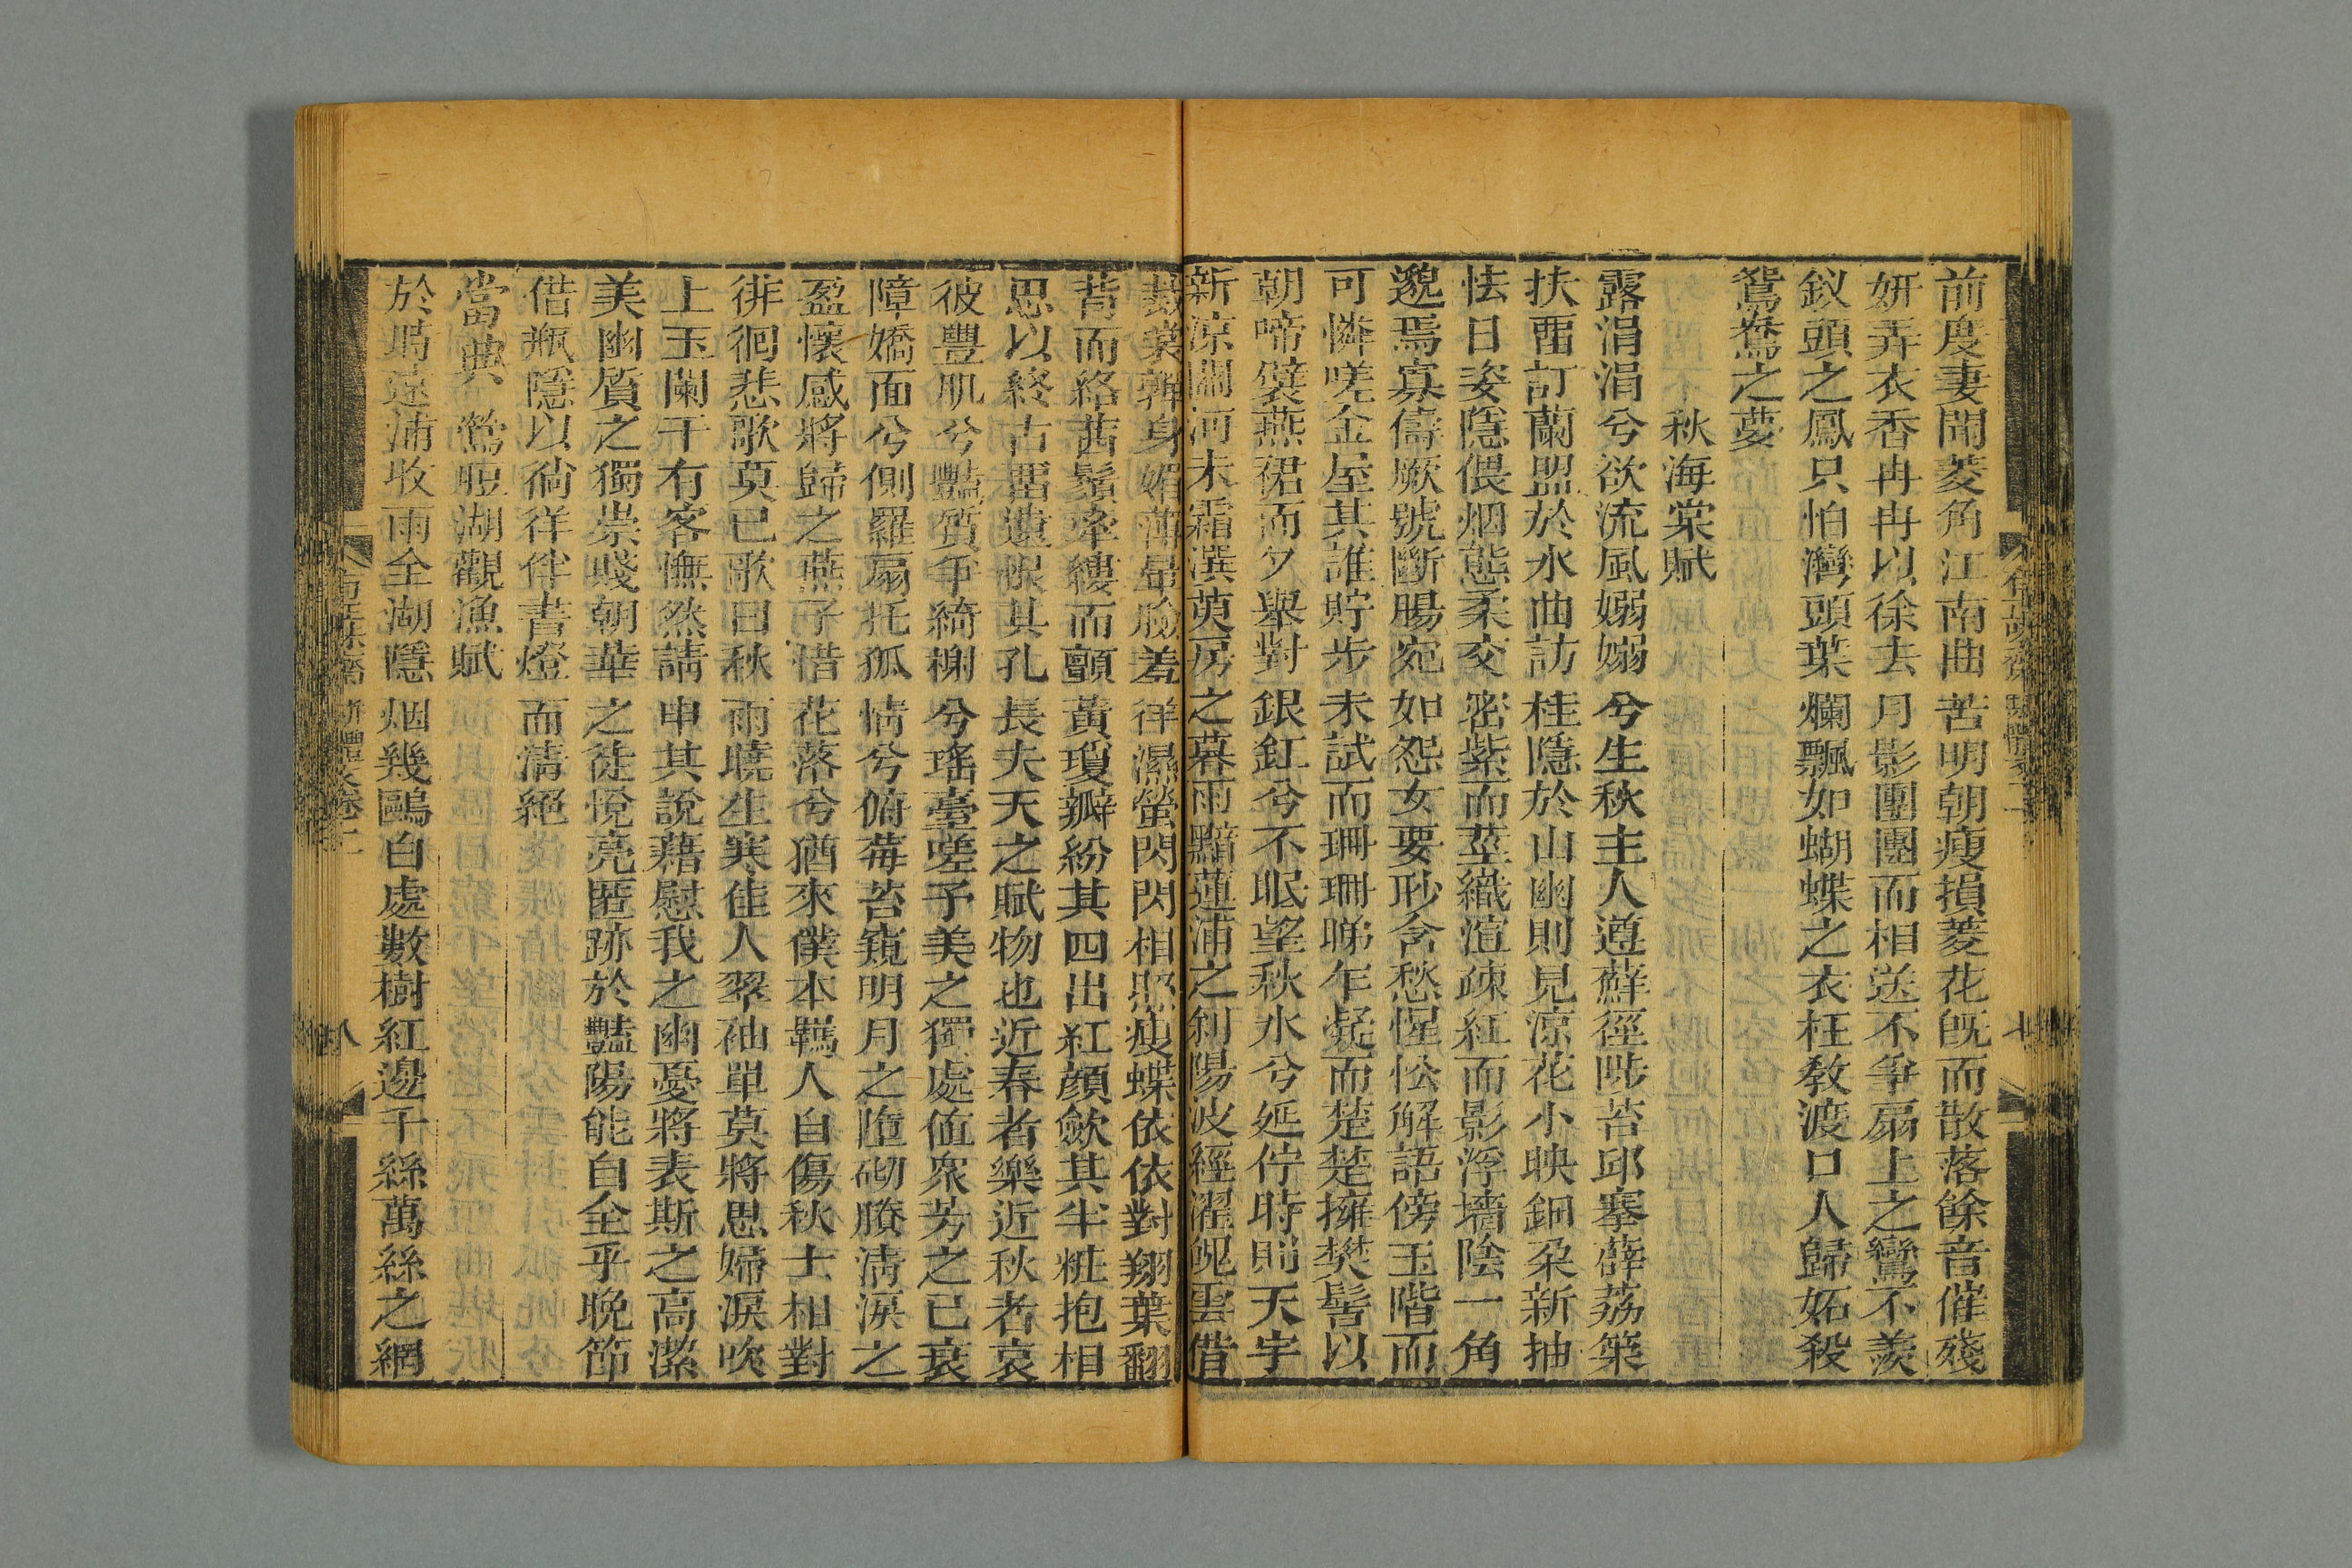 前度妻聞菱角江南曲苦明朝瘦損菱花旣而散落餘音催殘
妍弄衣香冉冉以徐去月影團團而相送不爭扇上之鸞不羨
釵頭之鳳只怕灣頭葉爛飄如蝴蝶之衣枉敎渡口人歸妬殺
鴛鴦之夢
秋海棠賦
露涓涓兮欲流風嫋嫋兮生秋主人遵蘚徑陟苔邱搴薜荔築
扶畱訂蘭盟於水曲訪桂隱於山幽則見涼花小映鈿朶新抽
怯日姿隱偎烟態柔交密紫而莖織渲疎紅而影浮墻陰一角
邈焉寡儔厥號斷腸宛如怨女要眇含愁惺忪解語傍玉階而
可憐嗟金屋其誰貯步未試而珊珊睇乍凝而楚楚擁樊髻以
朝啼襞燕裙而夕舉對銀釭兮不眠望秋水兮延佇時則天宇
新涼關河未霜潩萸房之暮雨黯蓮浦之斜陽波經濯魄雲借
裁裳舞身媚薄暈臉羞徉濕螢閃閃相照瘦蝶依依對翔葉翻
背而絡茜鬚牽縷而顫黃瓊瓣紛其四出紅顔歛其半粧抱相
思以終古畱遺恨其孔長夫天之賦物也近春者樂近秋者哀
彼豐肌兮豔質爭綺榭兮瑤臺嗟予美之獨處値衆芳之已衰
障嬌面兮側羅扇托孤情兮俯莓苔窺明月之墮砌賸淸淚之
盈懷感將歸之燕子惜花落兮猶來僕本羈人自傷秋士相對
徘徊悲歌莫已歌曰秋雨曉生寒佳人翠袖單莫將思婦淚吹
上玉闌干有客憮然請申其說藉慰我之幽憂將表斯之高潔
美幽質之獨崇賤朝華之徒悅亮匿跡於豔陽能自全乎晚節
借瓶隱以徜徉伴書燈而淸絕
當典 鶯脰湖觀漁賦
於時遠浦收雨全湖隱烟幾鷗白處數樹紅邊千絲萬絲之網
八